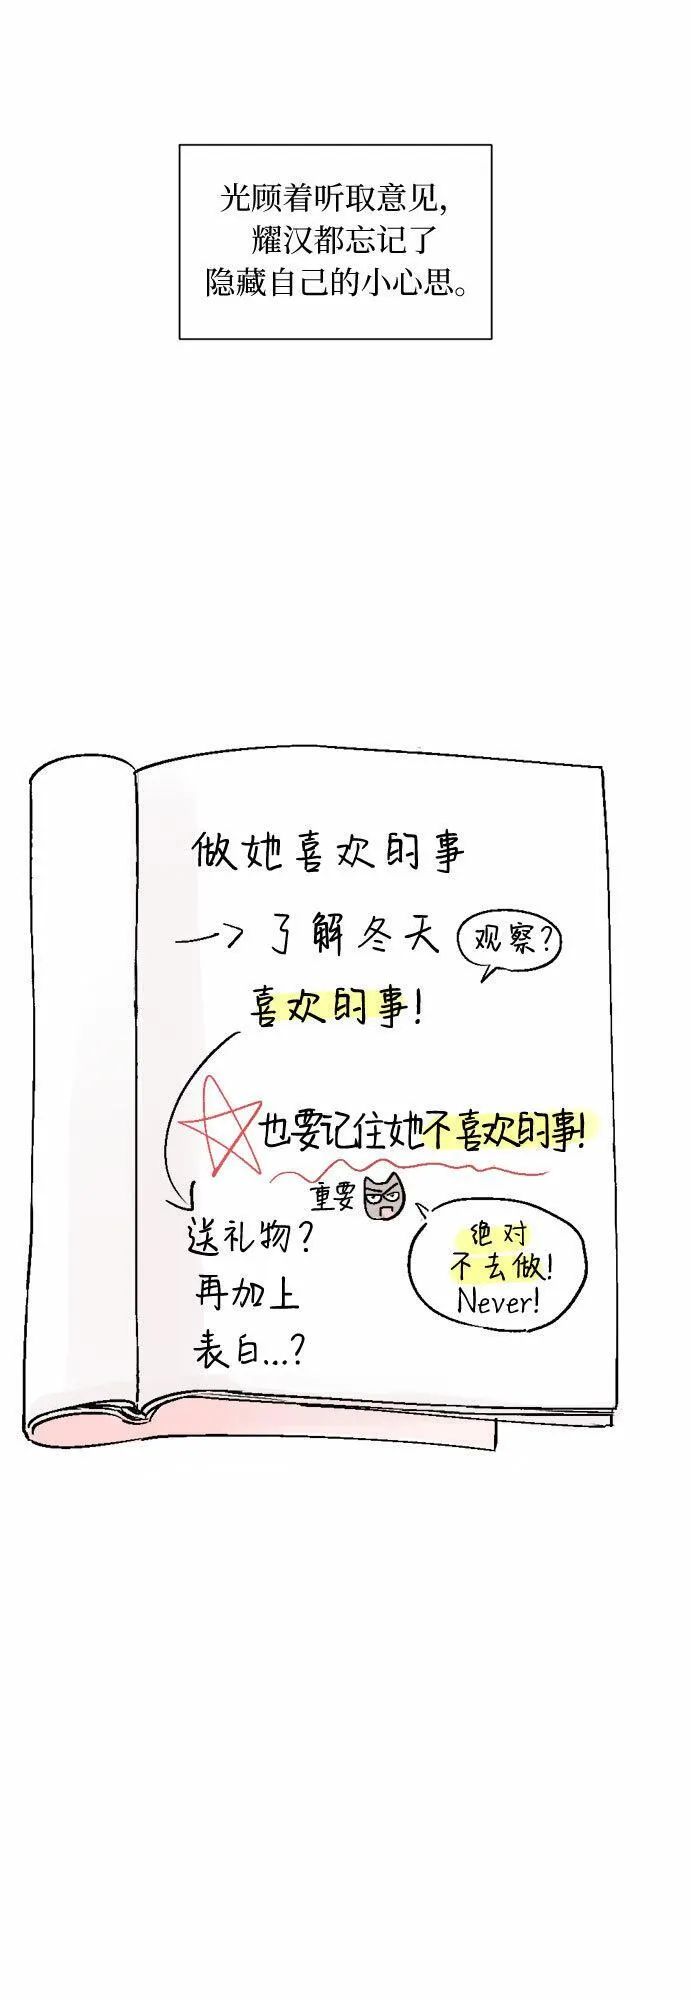 光顾着听取意见,
耀汉都忘记了
隐藏自己的小心思。
做她喜欢的事
→了解冬天
观察?
喜欢的事!
也要记住她不喜欢的事!
重要
送礼物?
再加上
表白...?
绝对
不去做!
Never!